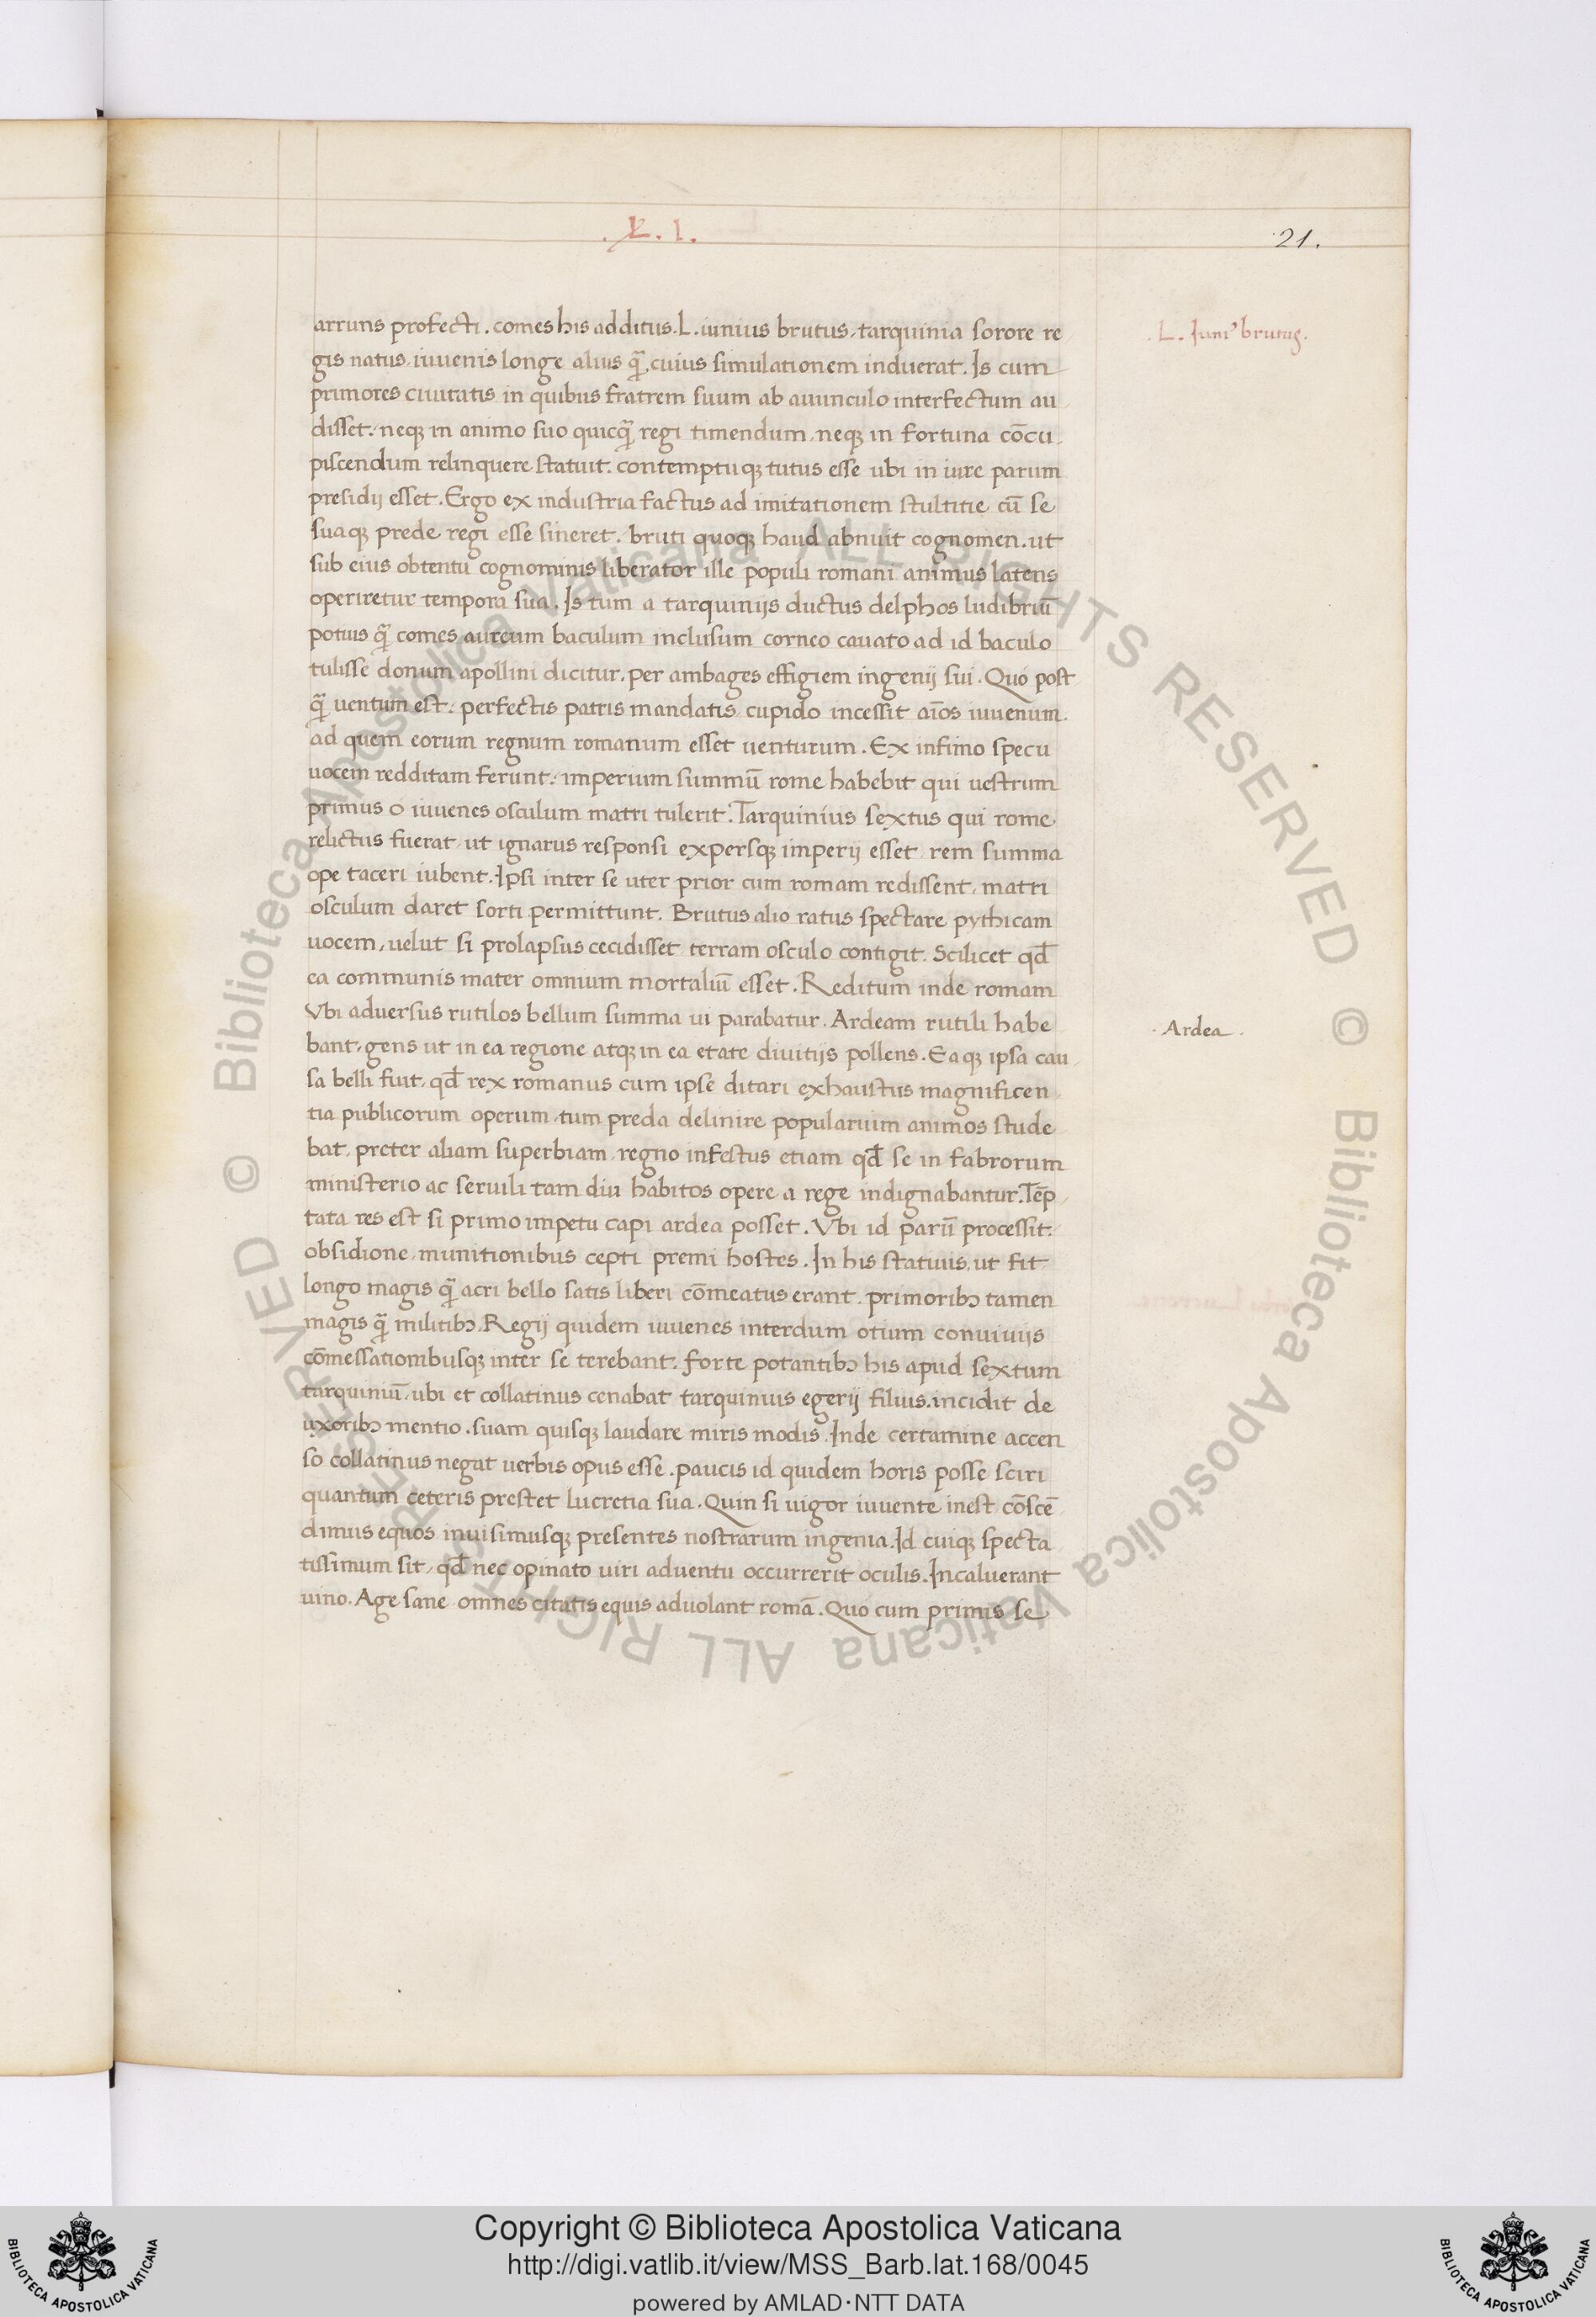 .L.I.
21.
arruns profecti. comes his additus. L. iunius brutus, tarquinia sorore re
.L. Iuni⁹ brutus.
gis natus, iuuenis longe alius q̃, cuius simulationem induerat. Is cum
primores ciuitatis in quibus fratrem suum ab auunculo interfectum au
disset. neqꝫ in animo suo quicq̃ regi timendum, neqꝫ in fortuna cōcu
piscendum relinquere statuit. contemptuqꝫ tutus esse ubi in iure parum
presidij esset. Ergo ex industria factus ad imitationem stultitie cū se
suaqꝫ prede regi esse sineret. bruti quoqꝫ haud abnuit cognomen. ut
sub eius obtentu cognominis liberator ille populi romani animus latens
operiretur tempora sua. Is tum a tarquinijs ductus delphos ludibriū
potius q̃ comes aureum baculum inclusum corneo cauato ad id baculo
tulisse donum apollini dicitur, per ambages effigiem ingenij sui. Quo post
q̃ uentum est. perfectis patris mandatis cupido incessit aīos iuuenum.
ad quem eorum regnum romanum esset uenturum. Ex infimo specu
uocem redditam ferunt. imperium summū rome habebit qui uestrum
primus o iuuenes osculum matri tulerit. Tarquinius sextus qui rome
relictus fuerat, ut ignarus responsi expersqꝫ imperij esset, rem summa
ope taceri iubent. Ipsi inter se uter prior cum romam redissent, matri
osculum daret sorti permittunt. Brutus alio ratus spectare pythicam
uocem, uelut si prolapsus cecidisset terram osculo contigit. Scilicet qđ
ea communis mater omnium mortaliū esset. Reditum inde romam
Vbi aduersus rutilos bellum summa ui parabatur. Ardeam rutili habe
.Ardea.
bant, gens ut in ea regione atqꝫ in ea etate diuitijs pollens. Eaqꝫ ipsa cau
sa belli fuit, qđ rex romanus cum ipse ditari exhaustus magnificen
tia publicorum operum, tum preda delinire popularium animos stude
bat, preter aliam superbiam, regno infestus etiam qđ se in fabrorum
ministerio ac seruili tam diu habitos opere a rege indignabantur. Tēp
tata res est si primo impetu capi ardea posset. Vbi id parū processit.
obsidione munitionibus cepti premi hostes. In his statiuis, ut fit
longo magis q̃ acri bello satis liberi cōmeatus erant. primoribꝫ tamen
magis q̃ militibꝫ. Regij quidem iuuenes interdum otium conuiuijs
cōmessationibusqꝫ inter se terebant. forte potantibꝫ his apud sextum
tarquiniū, ubi et collatinus cenabat tarquinius egerij filius. incidit de
uxoribꝫ mentio. suam quisqꝫ laudare miris modis. Inde certamine accen
so collatinus negat uerbis opus esse. paucis id quidem horis posse sciri
quantum ceteris prestet lucretia sua. Quin si uigor iuuente inest cōscē
dimus equos inuisimusqꝫ presentes nostrarum ingenia. Id cuiqꝫ specta
tissimum sit, qđ nec opinato uiri aduentu occurrerit oculis. Incaluerant
uino. Age sane omnes citatis equis aduolant romā. Quo cum primis se
© Biblioteca Apostolica Vaticana ALL RIGHTS RESERVED
© Biblioteca Apostolica Vaticana ALL RIGHTS RESERVED
Copyright © Biblioteca Apostolica Vaticana
http://digi.vatlib.it/view/MSS_Barb.lat.168/0045
powered by AMLAD·NTT DATA
BIBLIOTECA APOSTOLICA VATICANA
BIBLIOTECA APOSTOLICA VATICANA